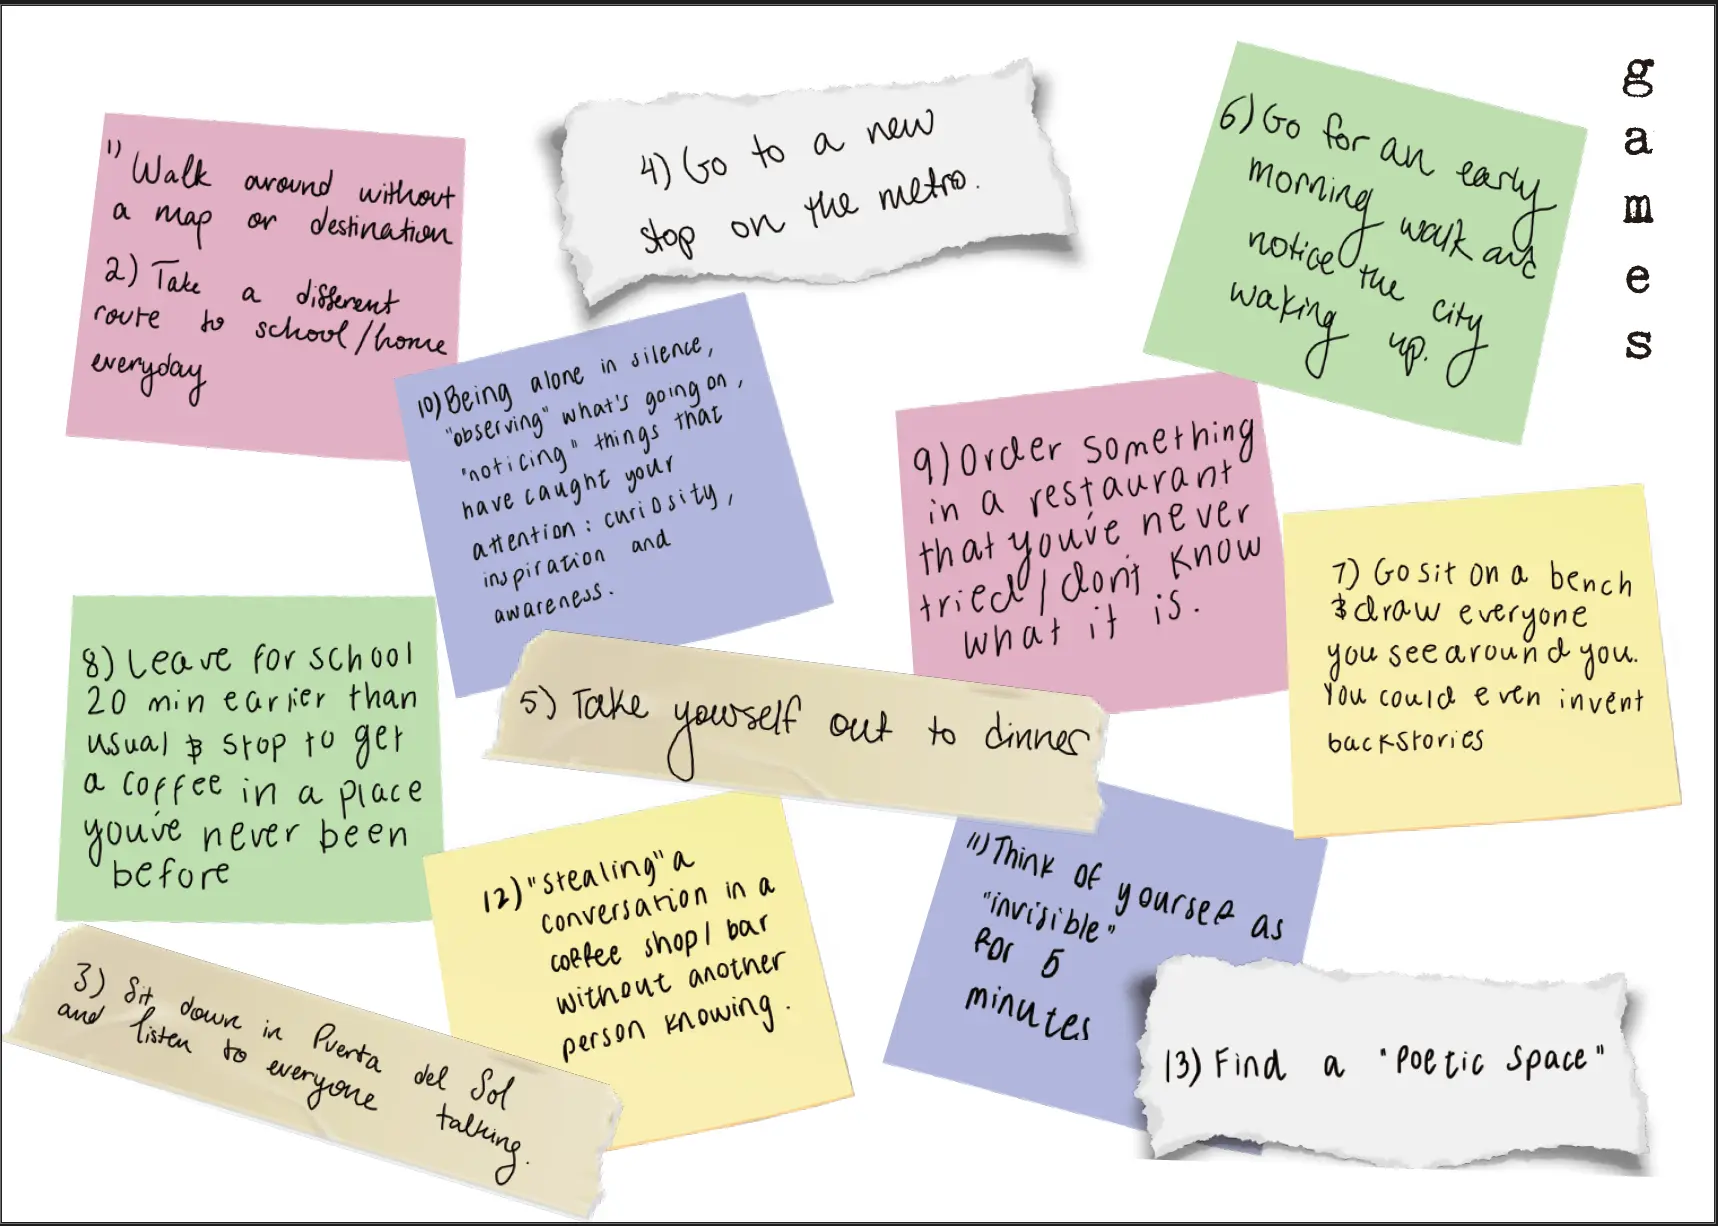 games
1) Walk around without
a map or destination
2) Take a different
route to school/home
everyday
4) Go to a new
stop on the metro.
6) Go for an early
morning walk and
notice the city
waking up.
10) Being alone in silence,
"observing" what's going on,
"noticing" things that
have caught your
attention: curiosity,
inspiration and
awareness.
9) Order something
in a restaurant
that you've never
tried/don't know
what it is.
7) Go sit on a bench
& draw everyone
you see around you.
You could even invent
backstories
8) Leave for school
20 min earlier than
usual & stop to get
a coffee in a place
you've never been
before
5) Take yourself out to dinner
12) "stealing" a
conversation in a
coffee shop/bar
without another
person knowing.
11) Think of yourself as
"invisible"
for 5
minutes
3) Sit down in Puerta del Sol
and listen to everyone
talking.
13) Find a "Poetic Space"